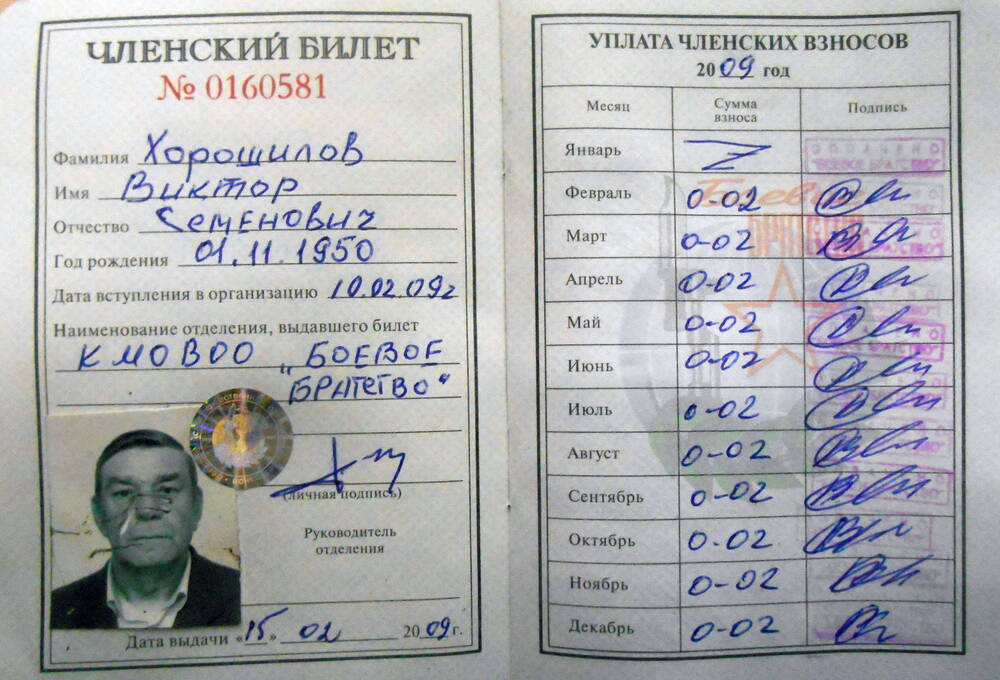 ЧЛЕНСКИЙ БИЛЕТ
№ 0160581
Фамилия Хорошилов
Имя Виктор
Отчество Семенович
Год рождения 01.11.1950
Дата вступления в организацию 10.02.09г
Наименование отделения, выдавшего билет
КМОВОО "БОЕВОЕ
БРАТСТВО"
(личная подпись)
Руководитель
отделения
Дата выдачи «15» 02 2009г.
УПЛАТА ЧЛЕНСКИХ ВЗНОСОВ
2009 год
Месяц Сумма взноса Подпись
Январь Z
Февраль 0-02
Март 0-02
Апрель 0-02
Май 0-02
Июнь 0-02
Июль 0-02
Август 0-02
Сентябрь 0-02
Октябрь 0-02
Ноябрь 0-02
Декабрь 0-02